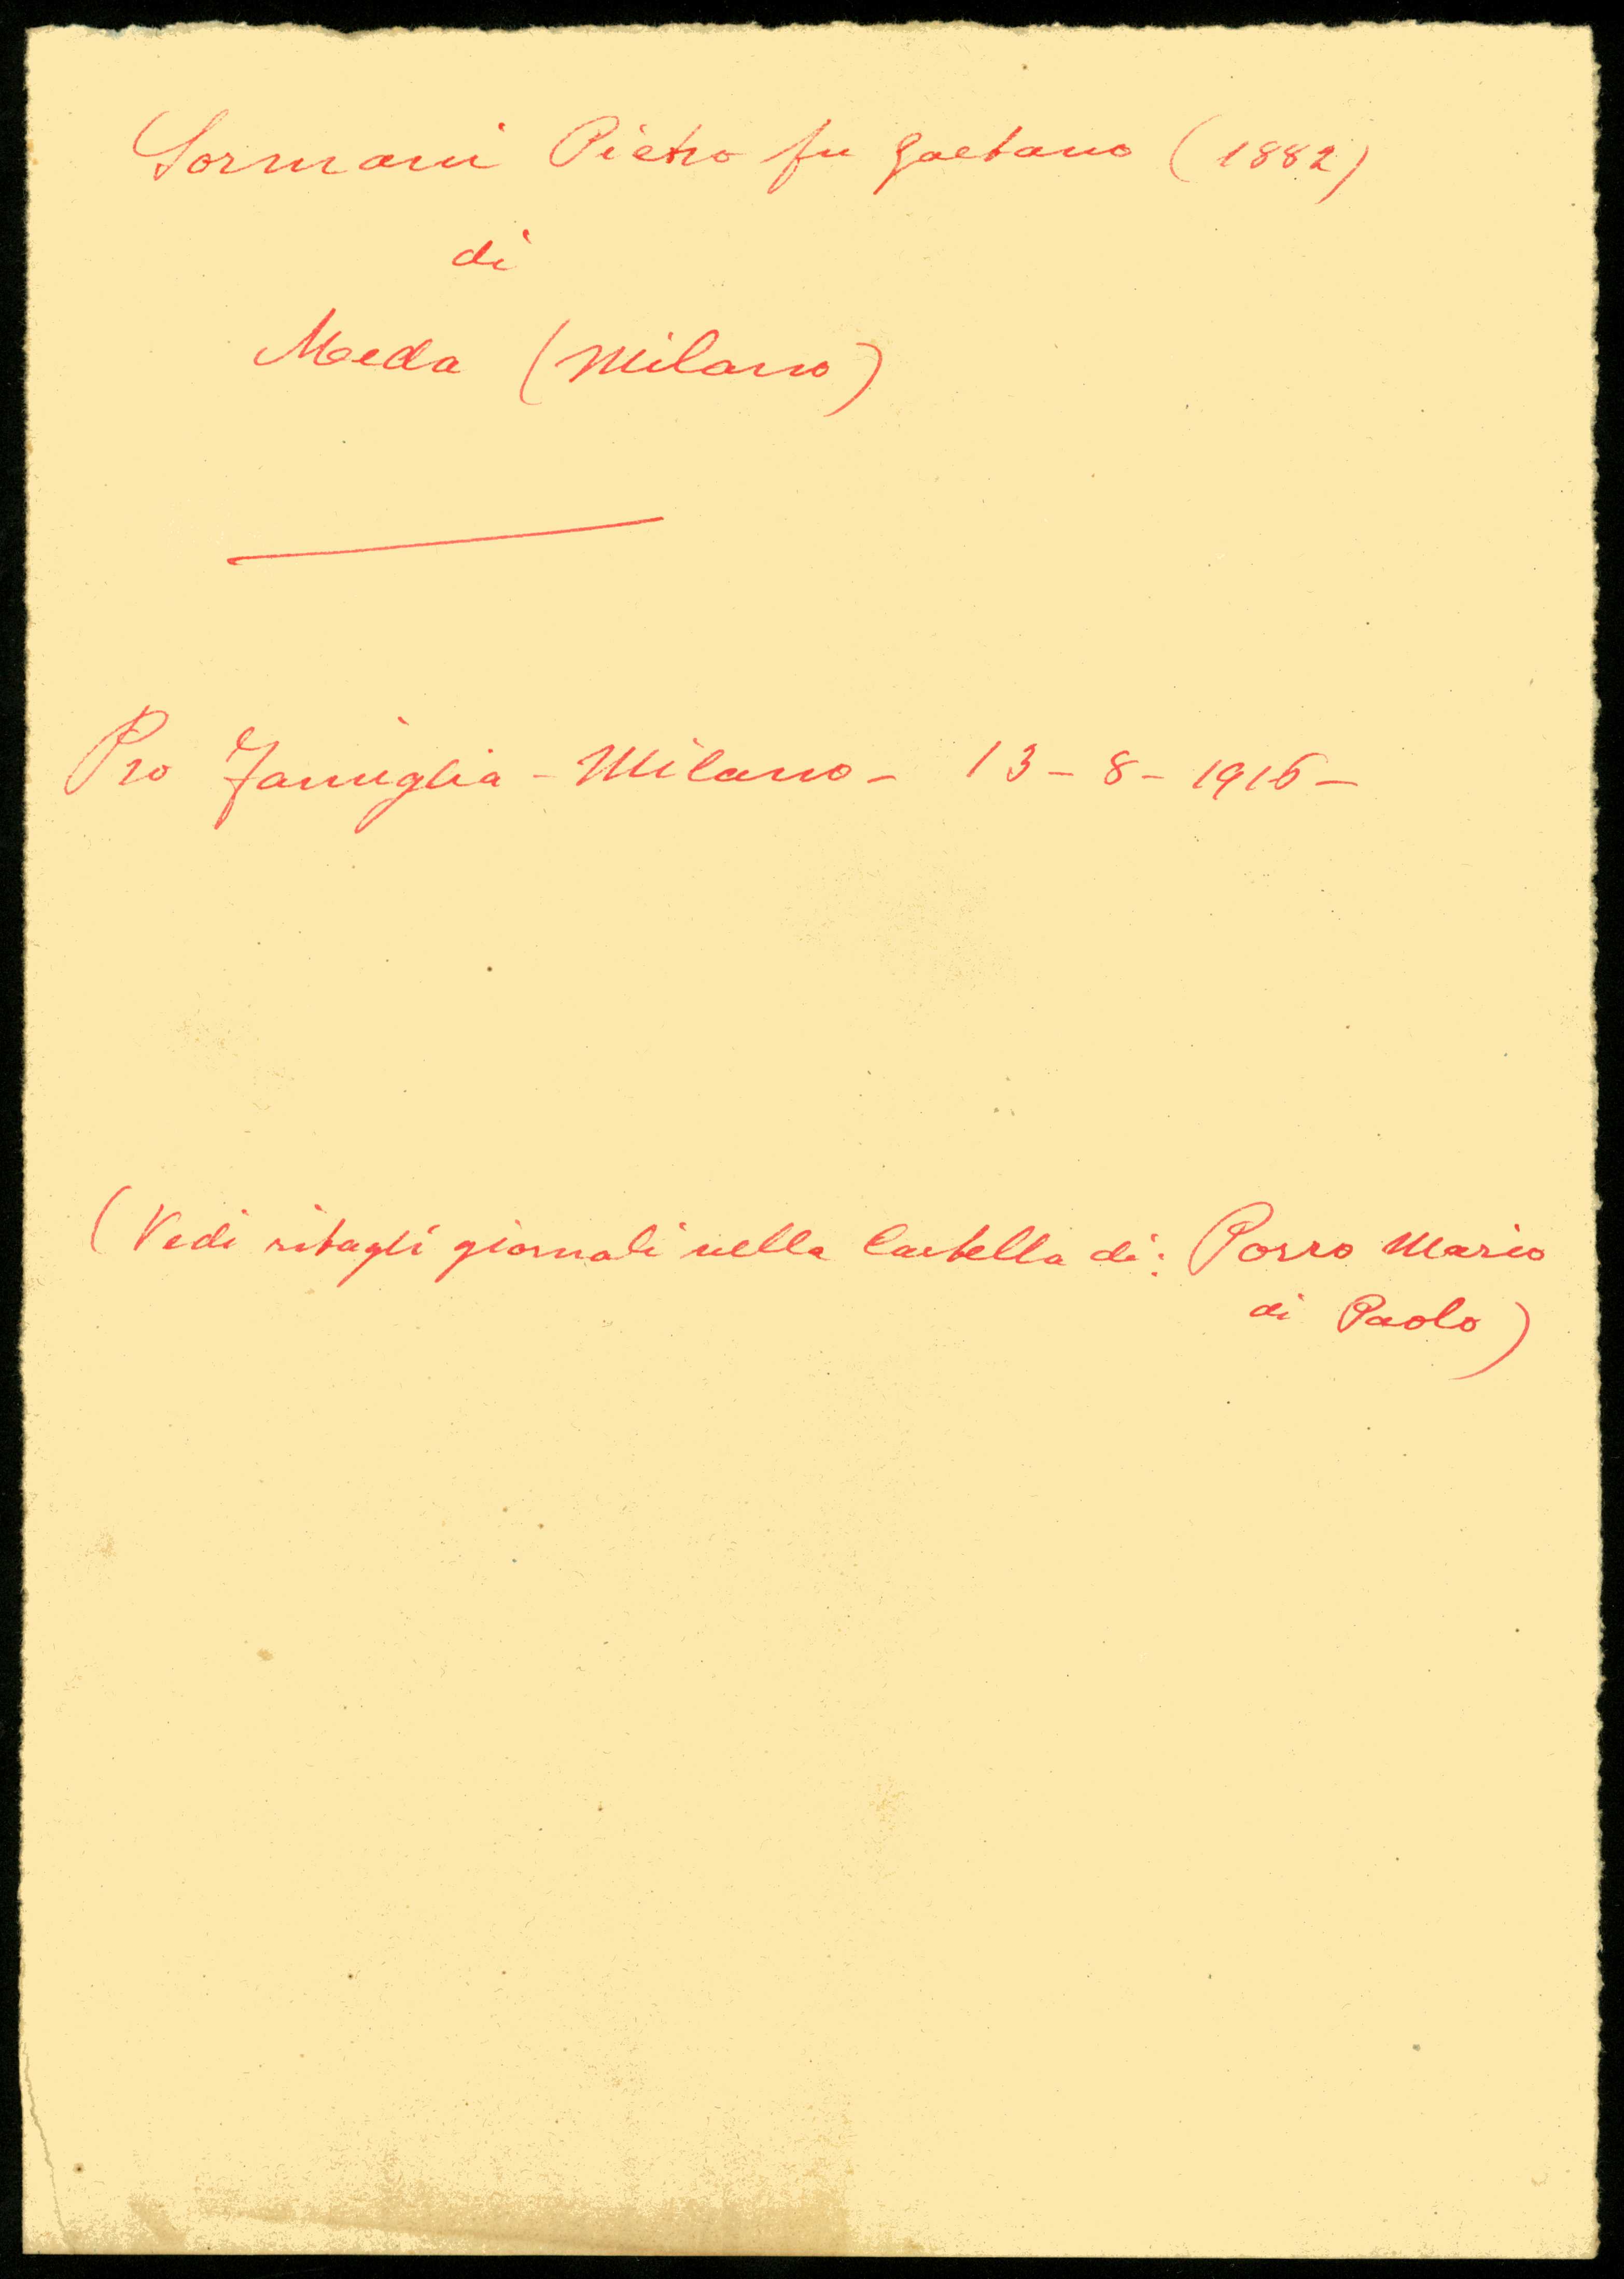 Sormani Pietro fu Gaetano (1882)
di
Meda (Milano)
Pro Famiglia - Milano - 13 - 8 - 1916 -
(Vedi ritagli giornali nella Cartella di: Porro Mario
di Paolo)